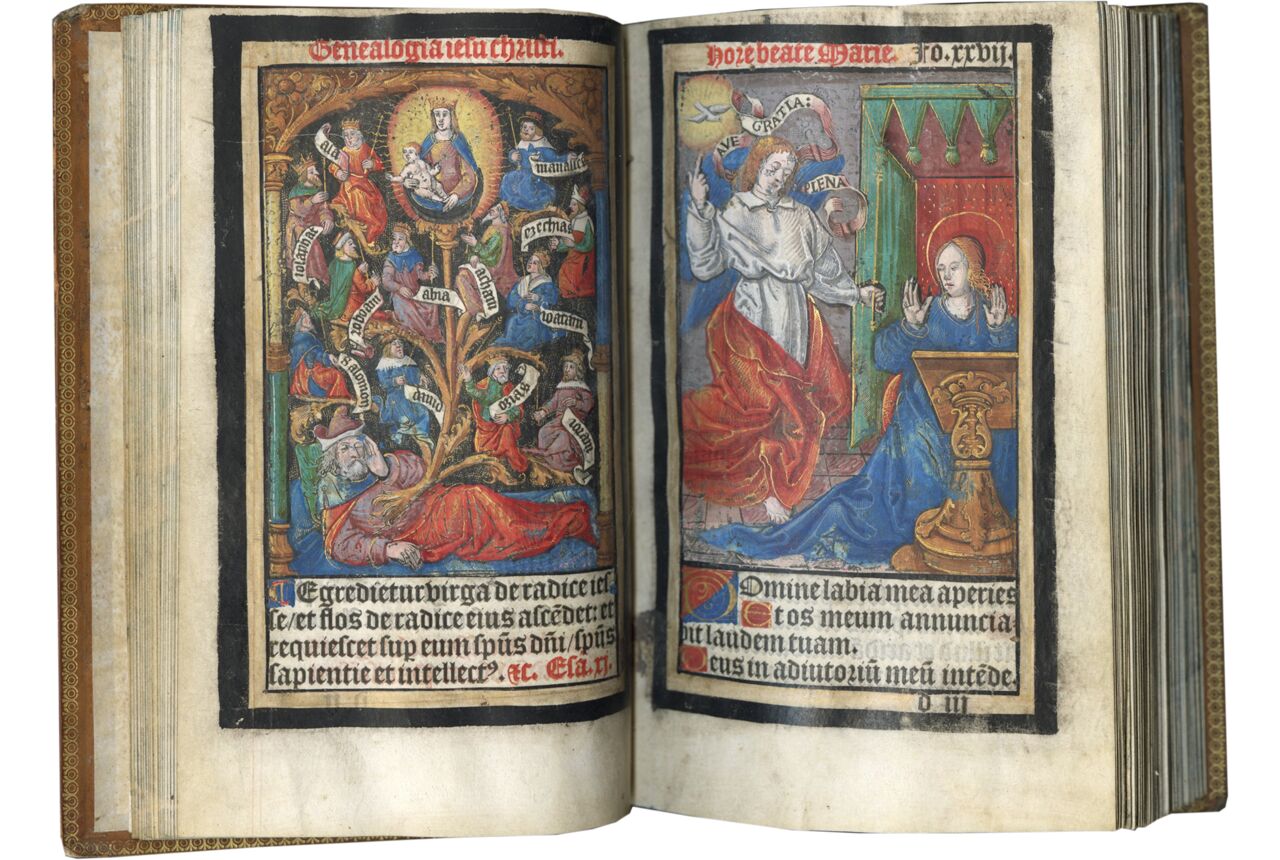 Genealogia iesu christi.
asa
manasses
iosaphat
ezechias
roboam
abia
acham
ioatam
Salomon
david
ozias
ioram
Egredietur virga de radice ies
se/et flos de radice eius ascēdet: et
requiescet sup eum spūs dñi/spūs
sapientie et intellectꝰ. ⁊c. Esa. xi.
Hore beate Marie. Fo.xxvij.
AVE GRATIA:
PLENA
Domine labia mea aperies
Et os meum annuncia
bit laudem tuam.
Deus in adiutoriū meū intēde.
d iii